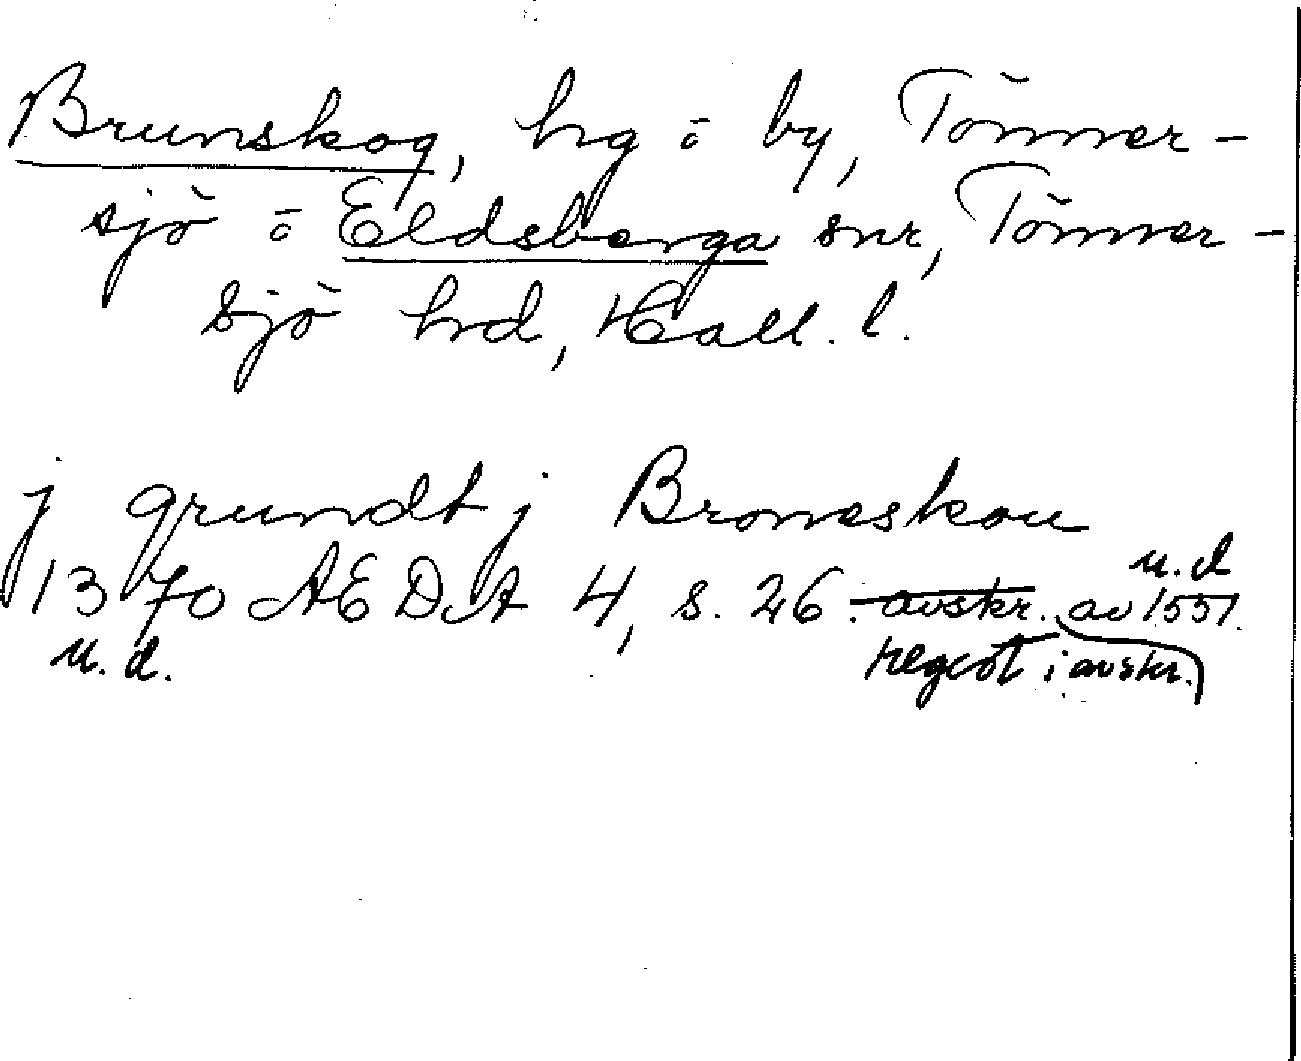 Brunskog, hg o by, Tönner-
sjö o Eldsberga snr, Tönner-
sjö hrd, Hall. l.
j grundt j Broneskou
u. d
1370 ÆDA 4, s. 26. avskr. av 1551.
u. d. regest i avskr.